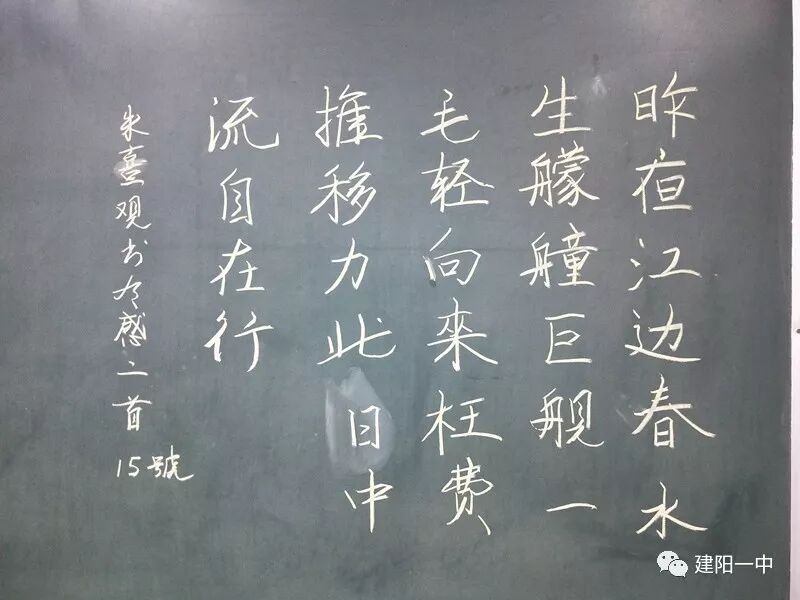 昨夜江边春水
生艨艟巨舰一
毛轻向來枉费
推移力此日中
流自在行
朱熹观书有感二首
15號
建阳一中